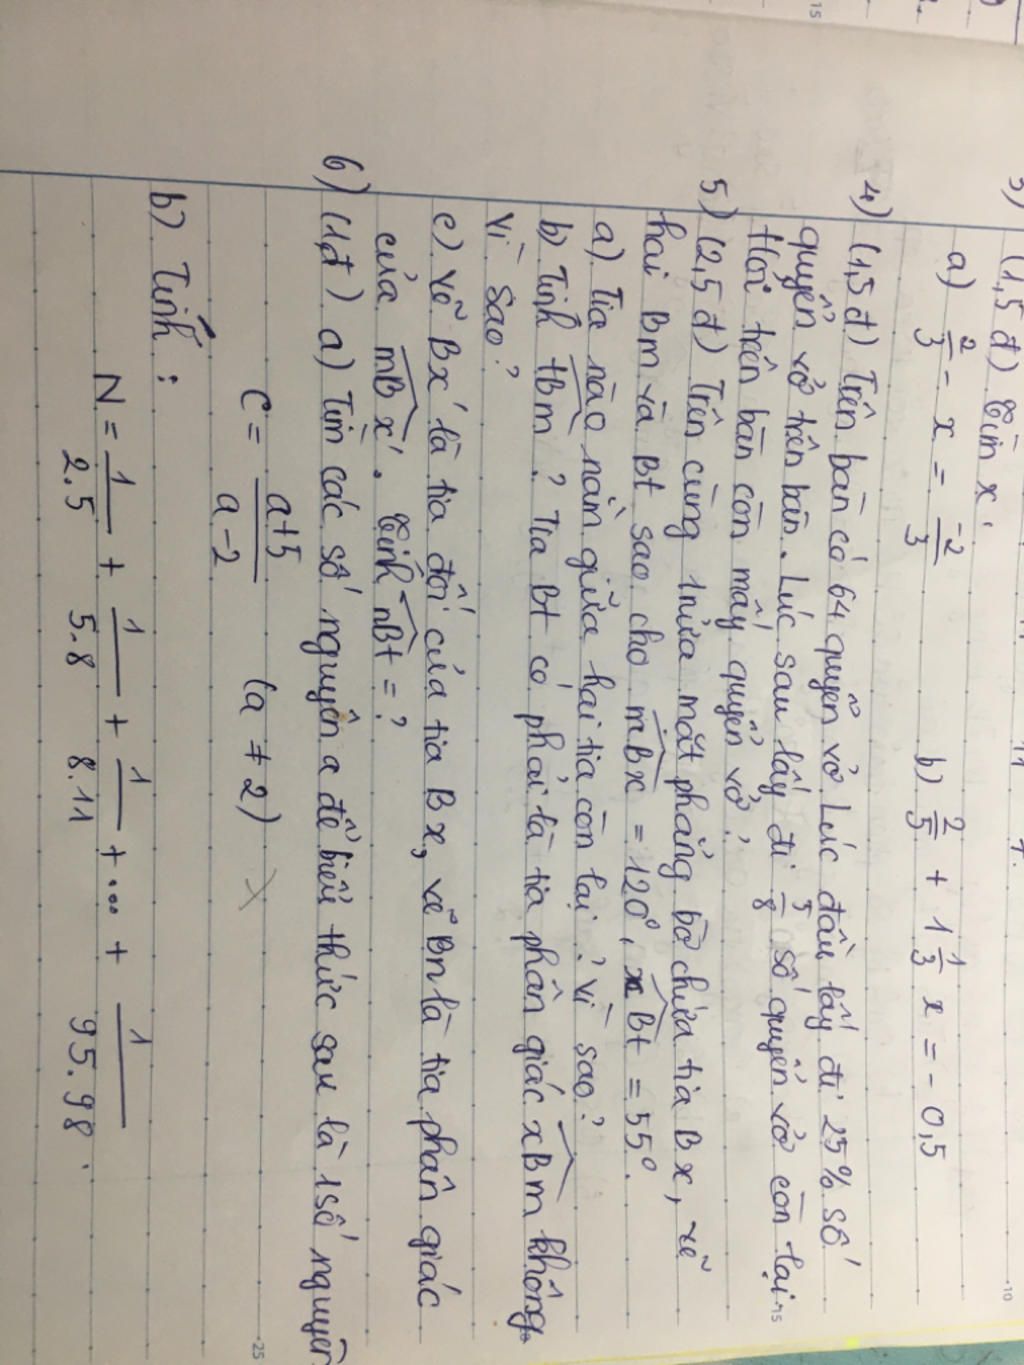 (1,5 đ) Tìm x:
a) 2/3 - x = -2/3 b) 2/5 + 1 1/3 x = - 0,5
4) (1,5 đ) Trên bàn có 64 quyển vở Lúc đầu lấy đi 25% số
quyển vở trên bàn. Lúc sau lấy đi 5/8 số quyển vở còn lại.
Hỏi trên bàn còn mấy quyển vở?
5) (2,5 đ) Trên cùng 1 nửa mặt phẳng bờ chứa tia Bx, vẽ
hai Bm và Bt sao cho mBx = 120°, xBt = 55°.
a) Tia nào nằm giữa hai tia còn lại? Vì sao?
b) Tính tBm? Tia Bt có phải là tia phân giác xBm không
Vì sao?
c) Vẽ Bx' là tia đối của tia Bx, vẽ Bn là tia phân giác
của mBx'. Tính nBt = ?
6) (1đ) a) Tìm các số nguyên a để biểu thức sau là 1 số nguyên
C = a+5/a-2 (a ≠ 2)
b) Tính:
N = 1/2.5 + 1/5.8 + 1/8.11 + ... + 1/95.98.